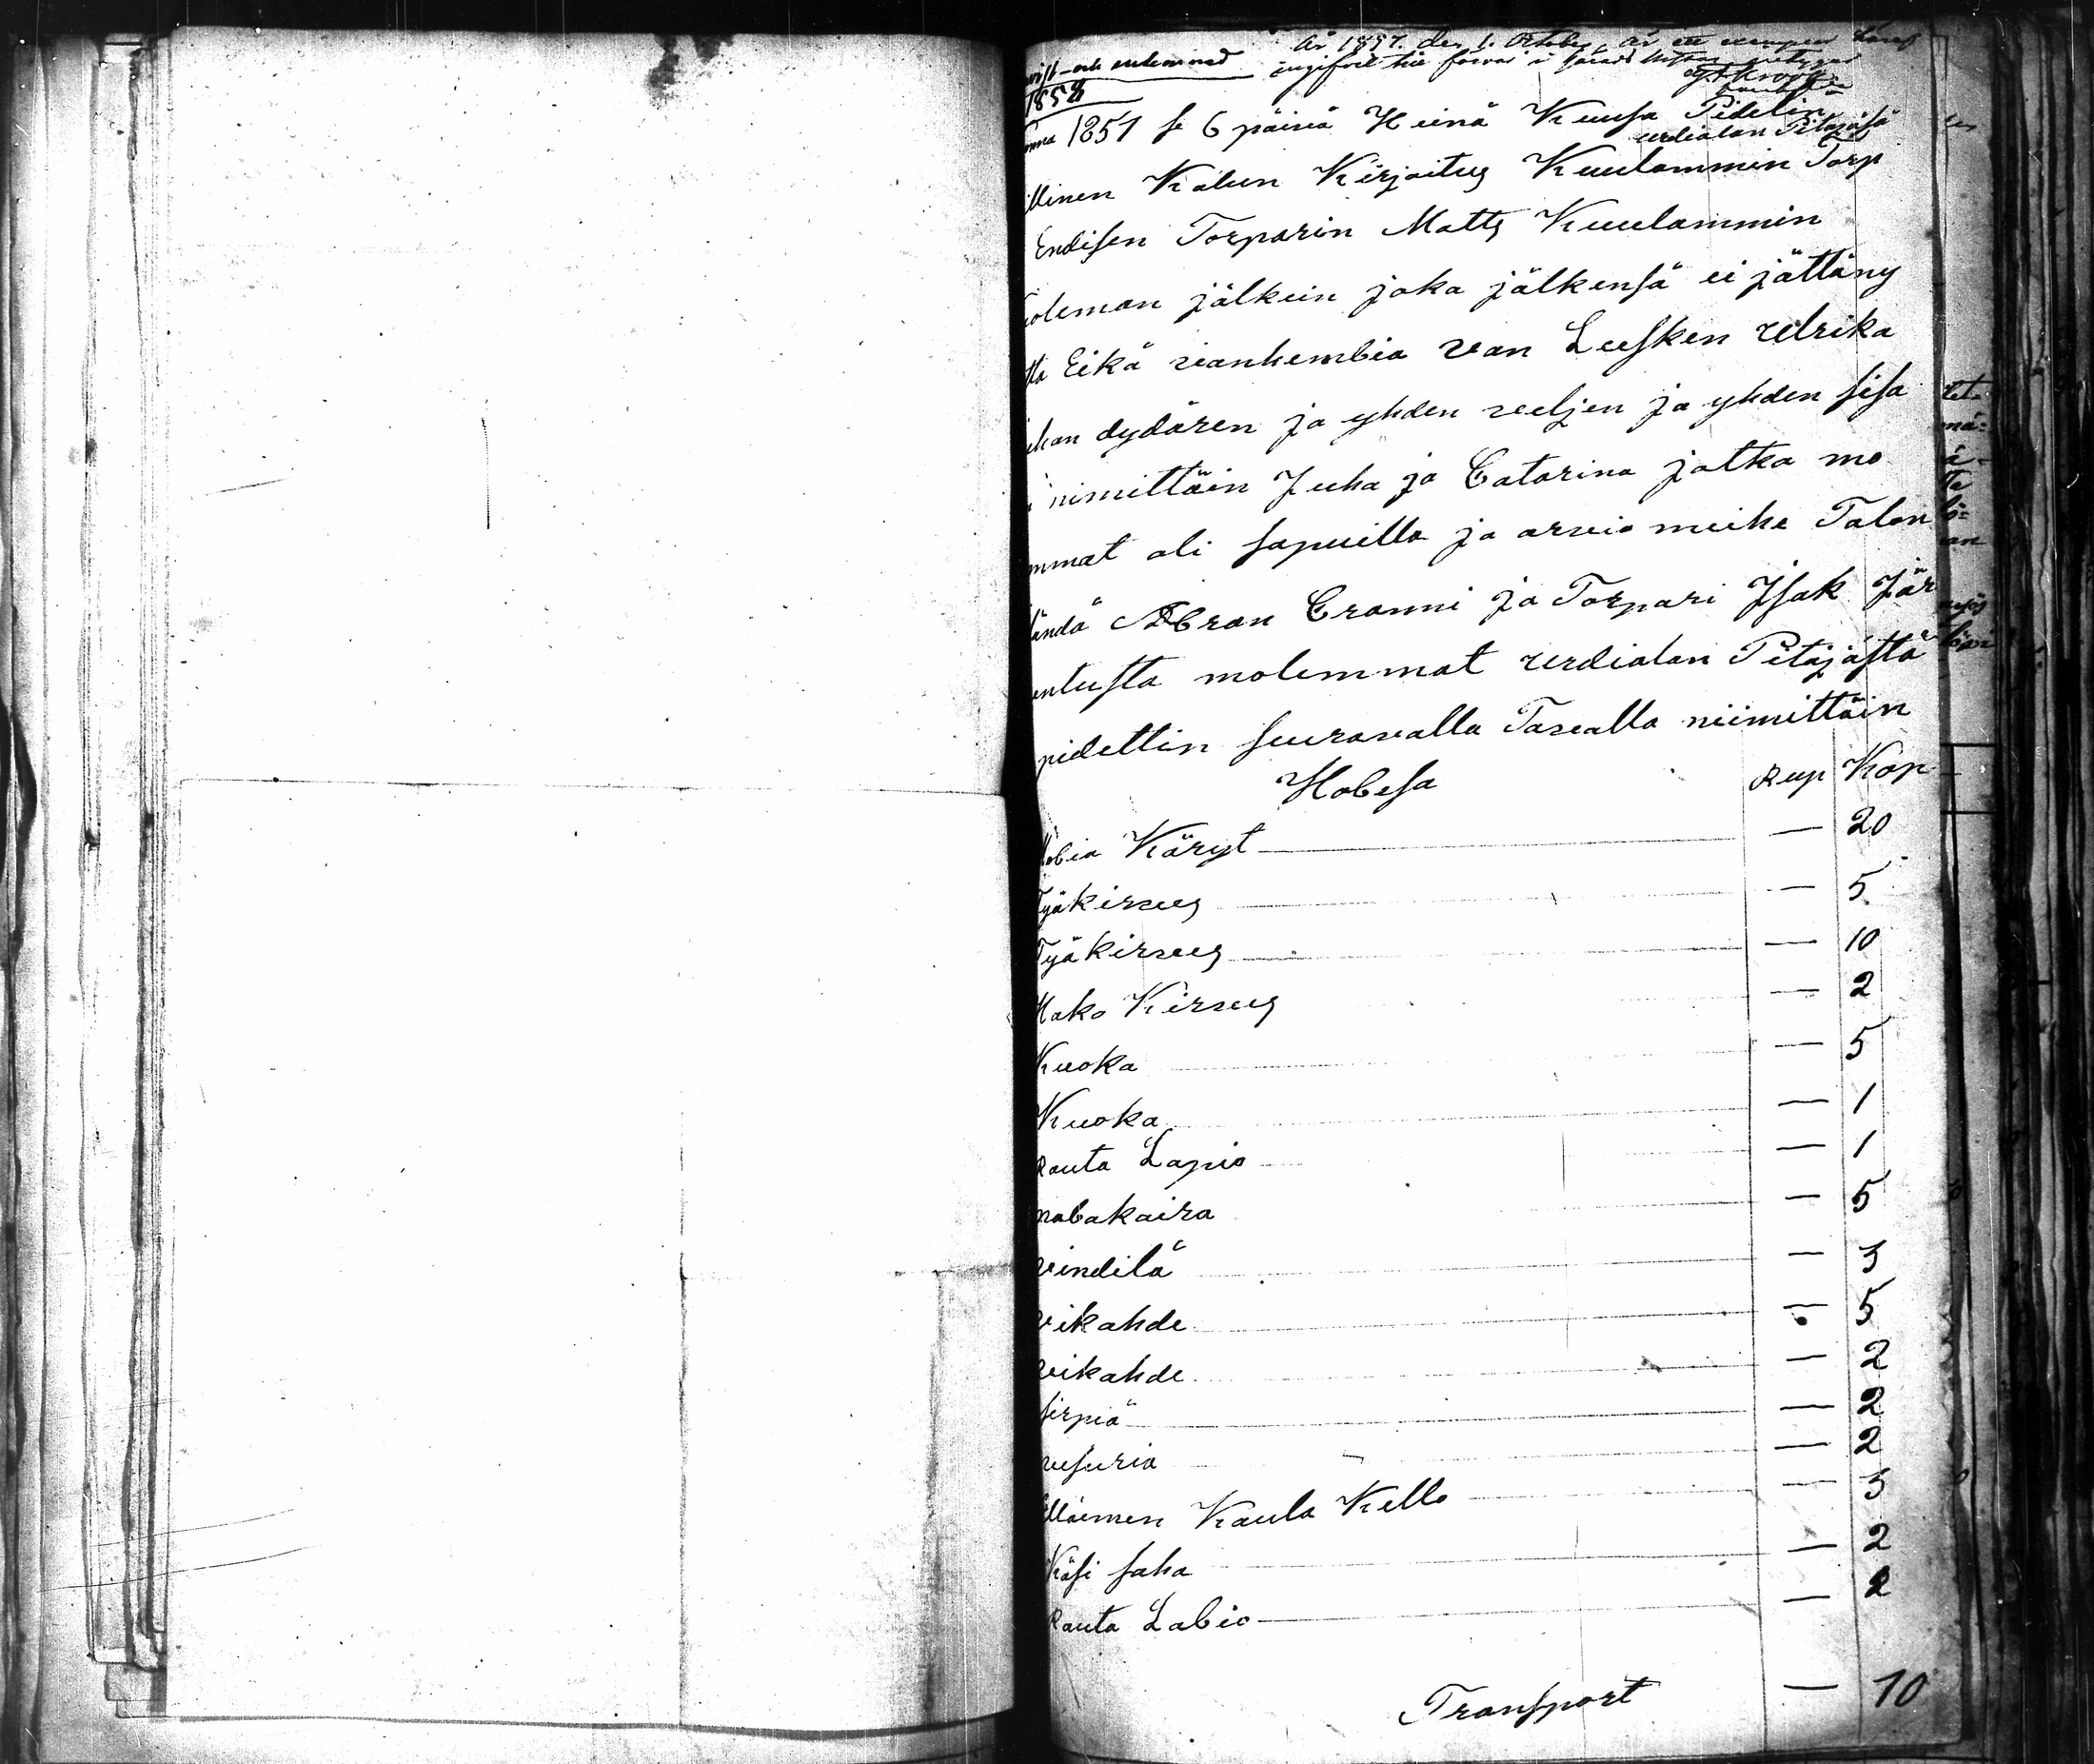 År 1857. den 1. October, är ett exemplar
ingifvit till förvar i
1858
1857 se 6 päivä Heinä Kuusa Pidetin
urdialan Pitäjäsä
llinen Kalun Kirjoitus Kuulammin Torp
Endisen Torparin Matts Kuulammin
uoleman jälkein joka jälkensä ei jättäny
Eikä vanhembia van Lesken ulrika
dydären ja yhden veljen ja yhden sisa
nimittäin Juha ja Catarina jotka mo
mmat oli sapuilla ja arvio meihe Talon
Abran Cranni ja Torpari Isak Jär
entusta molemmat urdialan Pitäjästä
pidettin seuravalla Tavalla niimittäin
Hobesa Rup Kop
Käryt — 20
Työkirvees — 5
Työkirvees — 10
Hako Kirvees — 2
Kuoka — 5
Kuoka — 1
Rauta Lapio — 1
nabakaira — 5
vindilä — 3
vikahde — 5
vikahde — 2
sirpiä — 2
vusuria — 2
Elläimen Kaula Kello — 3
Käsi saha — 2
Rauta Labio — 2
Transport — 70